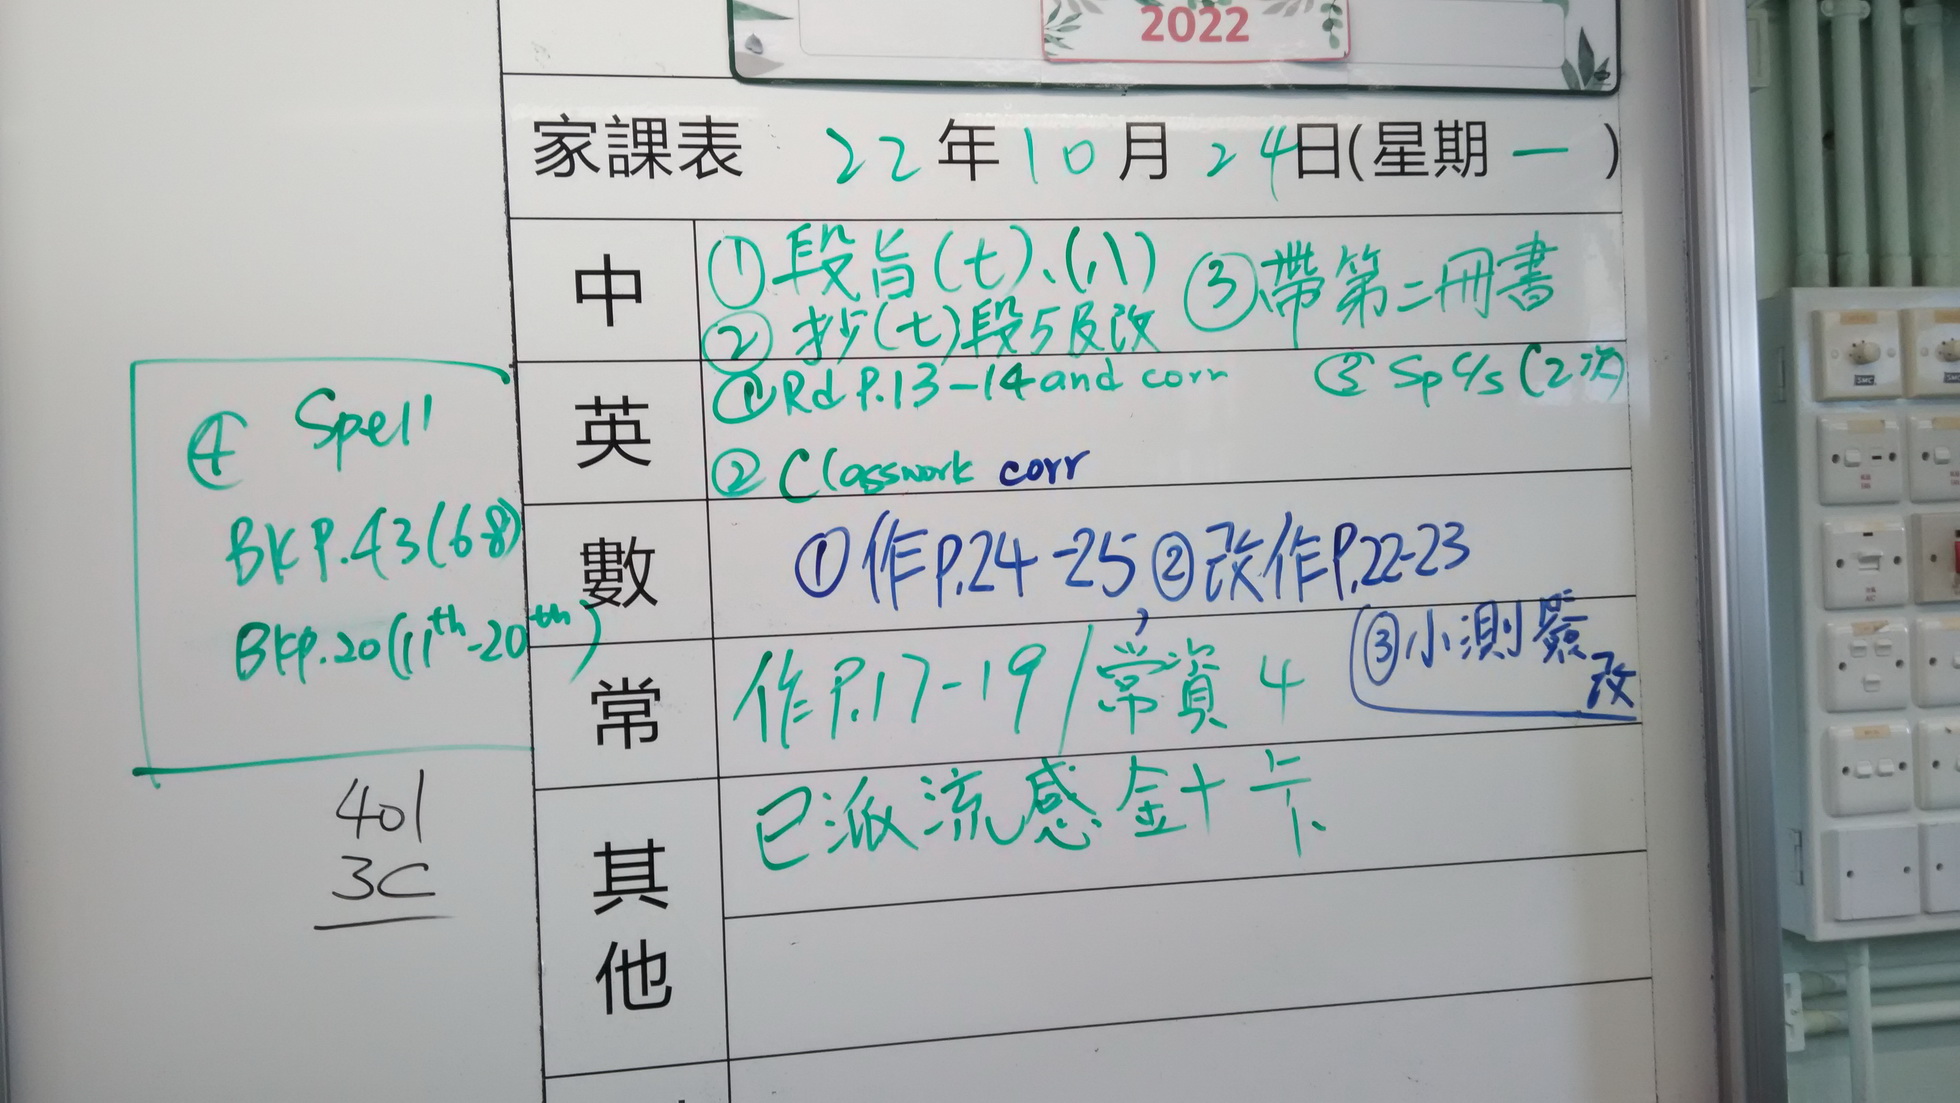 2022
家課表 22年10月24日(星期一)
中
①段旨(七)、(八) ③帶第二冊書
②抄(七)段5及改
英
①Rd P.13-14 and corr ③ Sp c/s (2次)
② Classwork corr
④ Spell
BK P.43(6-8)
BK P.20(11th-20th)
數
①作P.24-25 ②改作P.22-23
③小測驗改
常
作P.17-19/常資4
其他
已派流感針卡
401
3C